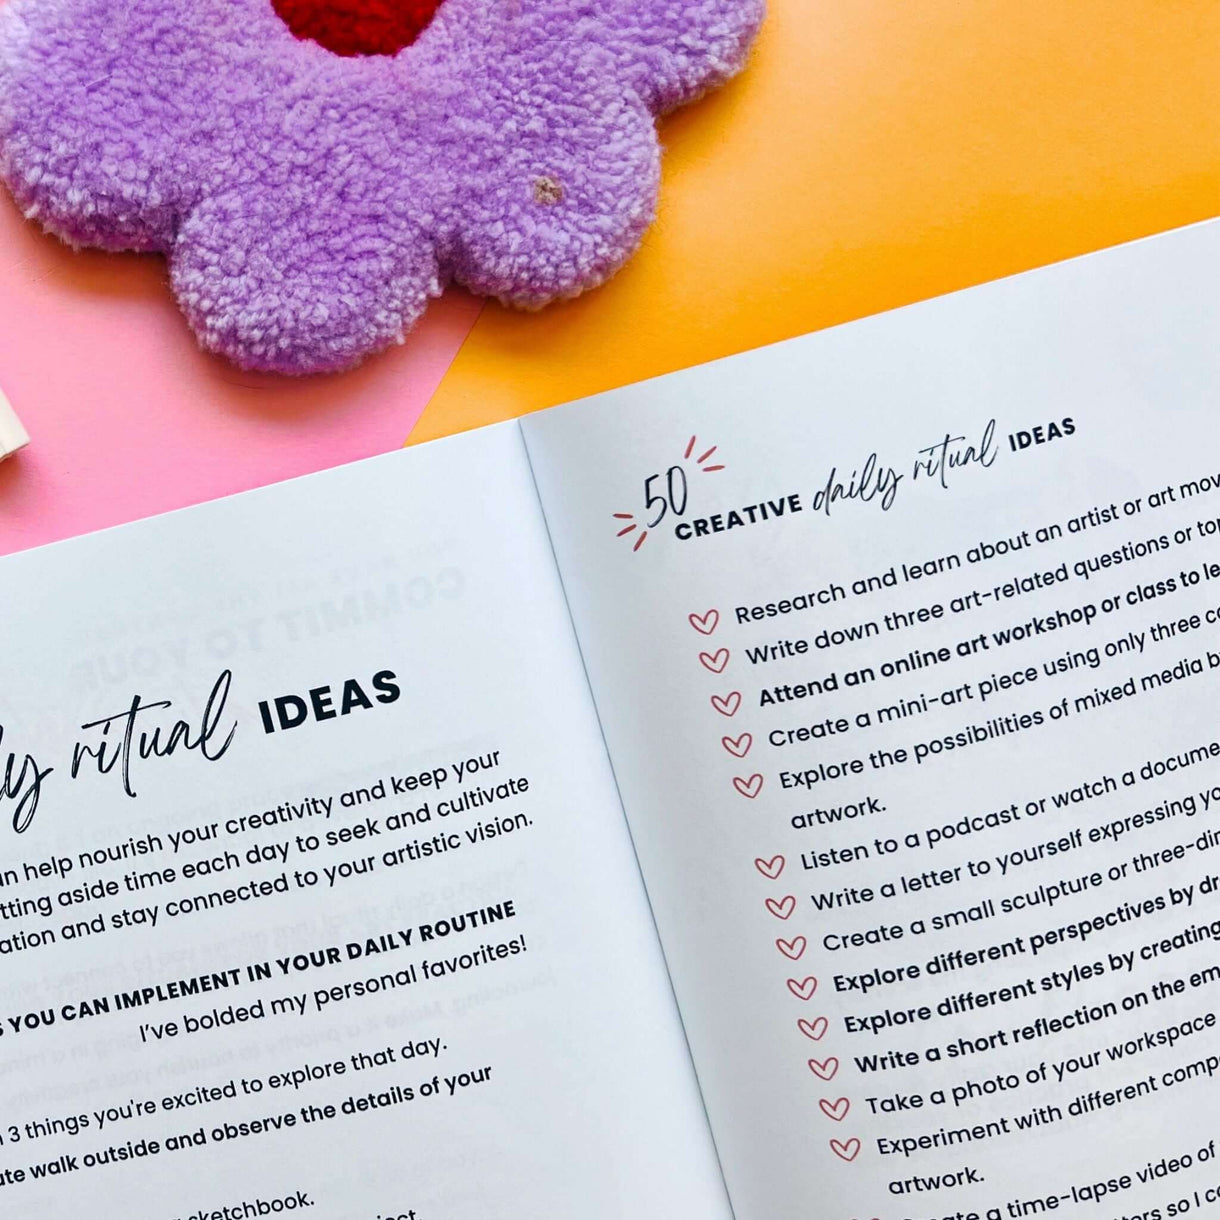 ritual IDEAS
help nourish your creativity and keep your
time each day to seek and cultivate
and stay connected to your artistic vision.
YOU CAN IMPLEMENT IN YOUR DAILY ROUTINE
I've bolded my personal favorites!
3 things you're excited to explore that day.
walk outside and observe the details of your
sketchbook.
50
CREATIVE daily ritual IDEAS
Research and learn about an artist or art
Write down three art-related questions or
Attend an online art workshop or class to
Create a mini-art piece using only three
Explore the possibilities of mixed media
artwork.
Listen to a podcast or watch a
Write a letter to yourself expressing
Create a small sculpture or
Explore different perspectives by
Explore different styles by creating
Write a short reflection on the
Take a photo of your workspace
Experiment with different
artwork.
a time-lapse video of
so I